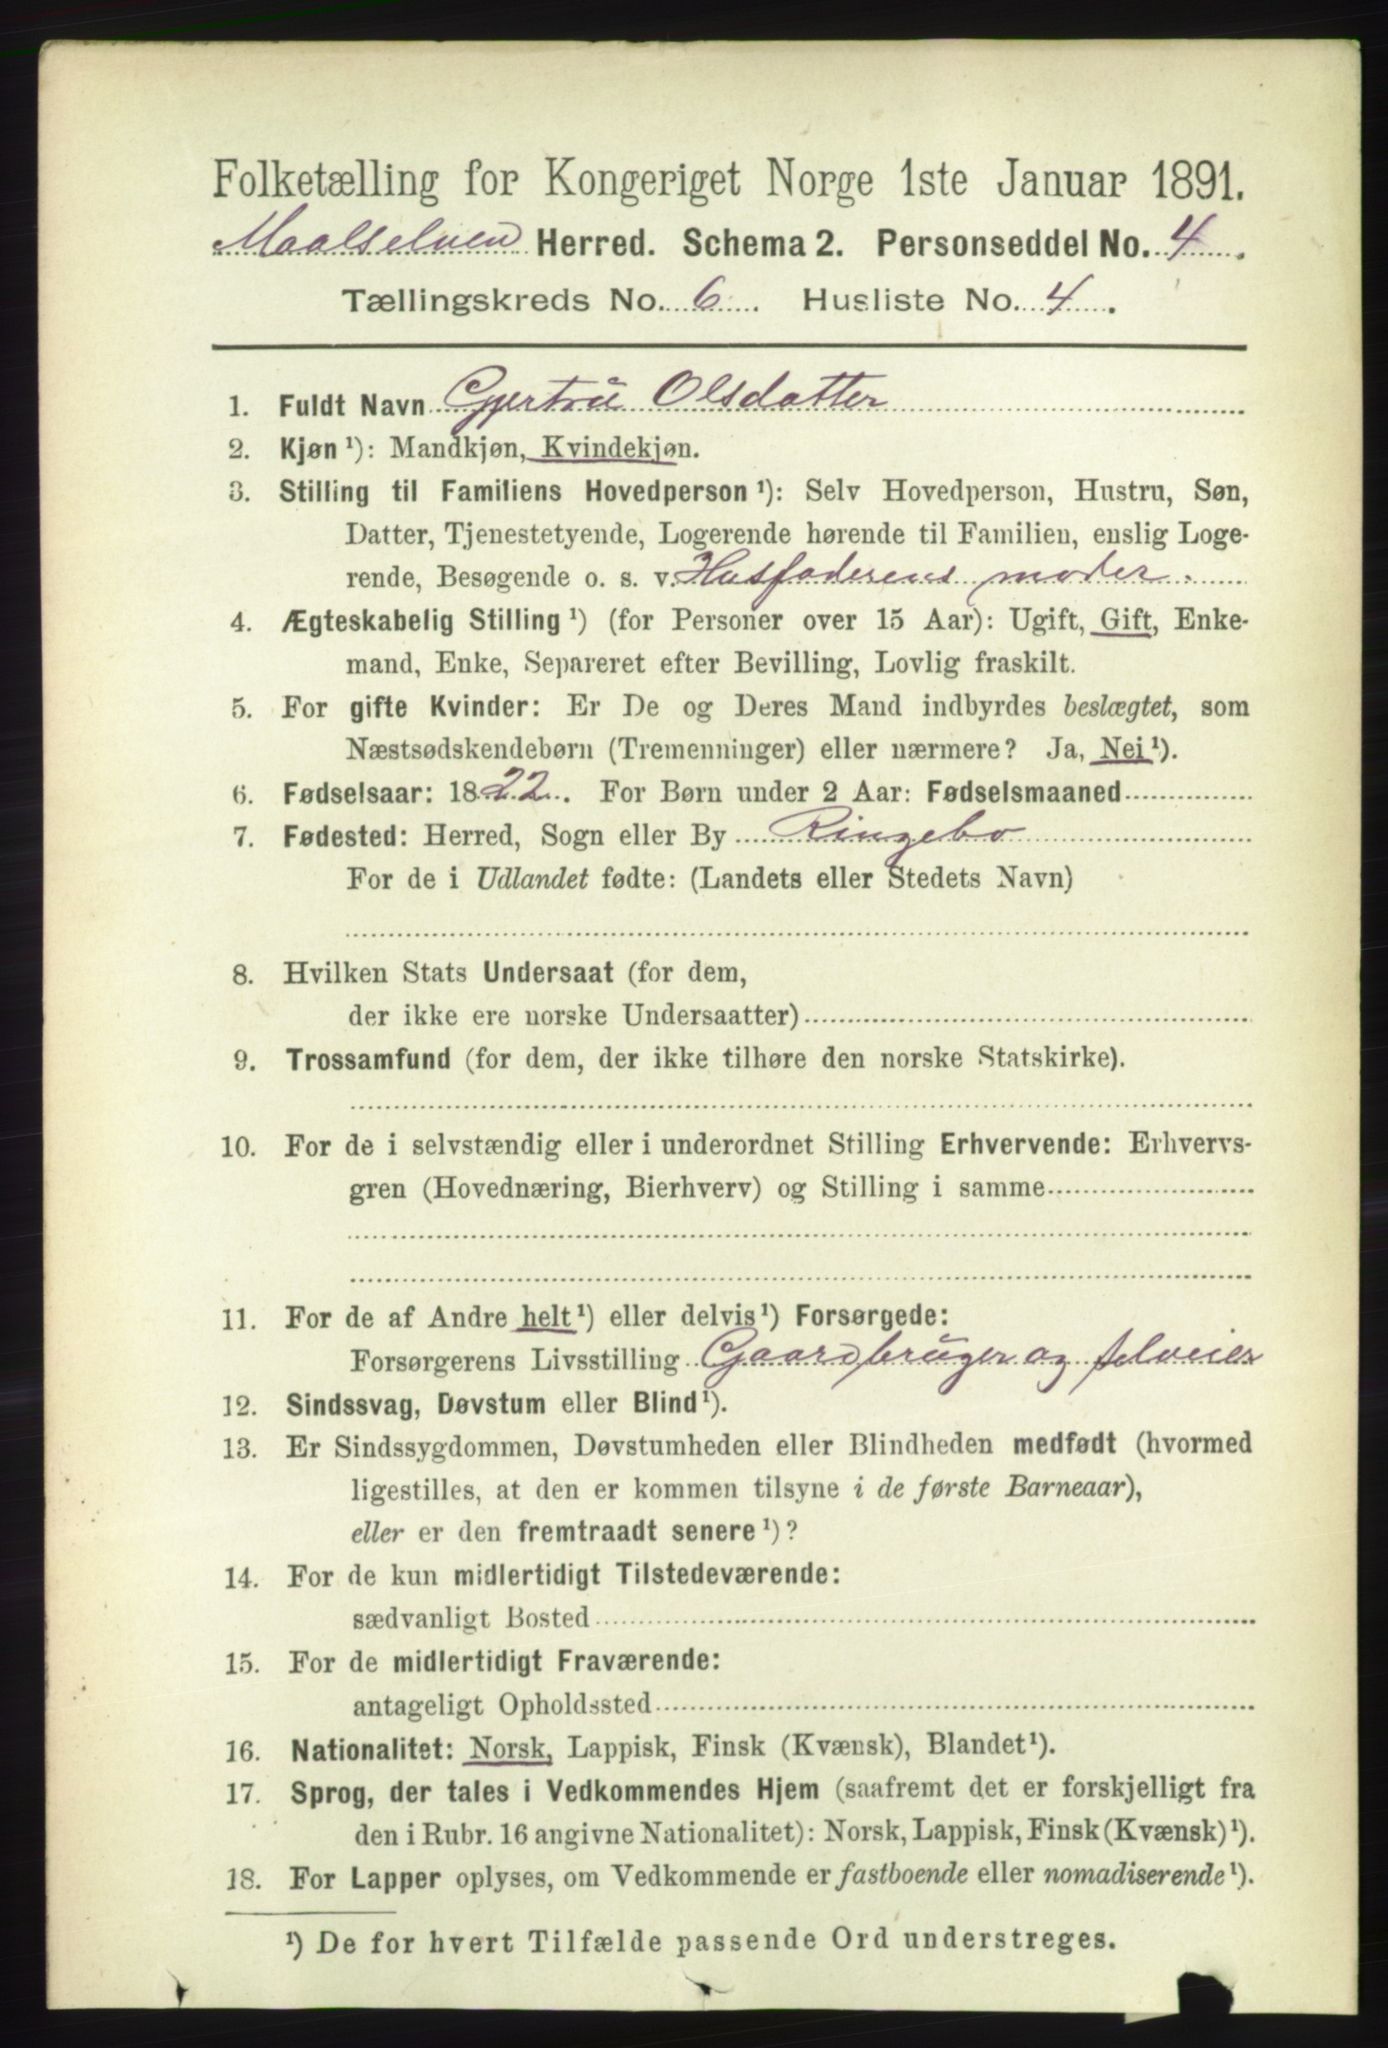 Folketælling for Kongeriget Norge 1ste Januar 1891.
Maalselven Herred. Schema 2. Personseddel No. 4.
Tællingskreds No. 6. Husliste No. 4.
1. Fuldt Navn Gjertru Olsdatter
2. Kjøn ¹): Mandkjøn, Kvindekjøn.
3. Stilling til Familiens Hovedperson ¹): Selv Hovedperson, Hustru, Søn,
Datter, Tjenestetyende, Logerende hørende til Familien, enslig Loge-
rende, Besøgende o. s. v. Husfaderens moder.
4. Ægteskabelig Stilling ¹) (for Personer over 15 Aar): Ugift, Gift, Enke-
mand, Enke, Separeret efter Bevilling, Lovlig fraskilt.
5. For gifte Kvinder: Er De og Deres Mand indbyrdes beslægtet, som
Næstsødskendebørn (Tremenninger) eller nærmere? Ja, Nei ¹).
6. Fødselsaar: 1822. For Børn under 2 Aar: Fødselsmaaned
7. Fødested: Herred, Sogn eller By Ringebo
For de i Udlandet fødte: (Landets eller Stedets Navn)
8. Hvilken Stats Undersaat (for dem,
der ikke ere norske Undersaatter)
9. Trossamfund (for dem, der ikke tilhøre den norske Statskirke).
10. For de i selvstændig eller i underordnet Stilling Erhvervende: Erhvervs-
gren (Hovednæring, Bierhverv) og Stilling i samme
11. For de af Andre helt ¹) eller delvis ¹) Forsørgede:
Forsørgerens Livsstilling Gaardbruger og selveier
12. Sindssvag, Døvstum eller Blind ¹).
13. Er Sindssygdommen, Døvstumheden eller Blindheden medfødt (hvormed
ligestilles, at den er kommen tilsyne i de første Barneaar),
eller er den fremtraadt senere ¹)?
14. For de kun midlertidigt Tilstedeværende:
sædvanligt Bosted
15. For de midlertidigt Fraværende:
antageligt Opholdssted
16. Nationalitet: Norsk, Lappisk, Finsk (Kvænsk), Blandet ¹).
17. Sprog, der tales i Vedkommendes Hjem (saafremt det er forskjelligt fra
den i Rubr. 16 angivne Nationalitet): Norsk, Lappisk, Finsk (Kvænsk) ¹).
18. For Lapper oplyses, om Vedkommende er fastboende eller nomadiserende ¹).
¹) De for hvert Tilfælde passende Ord understreges.